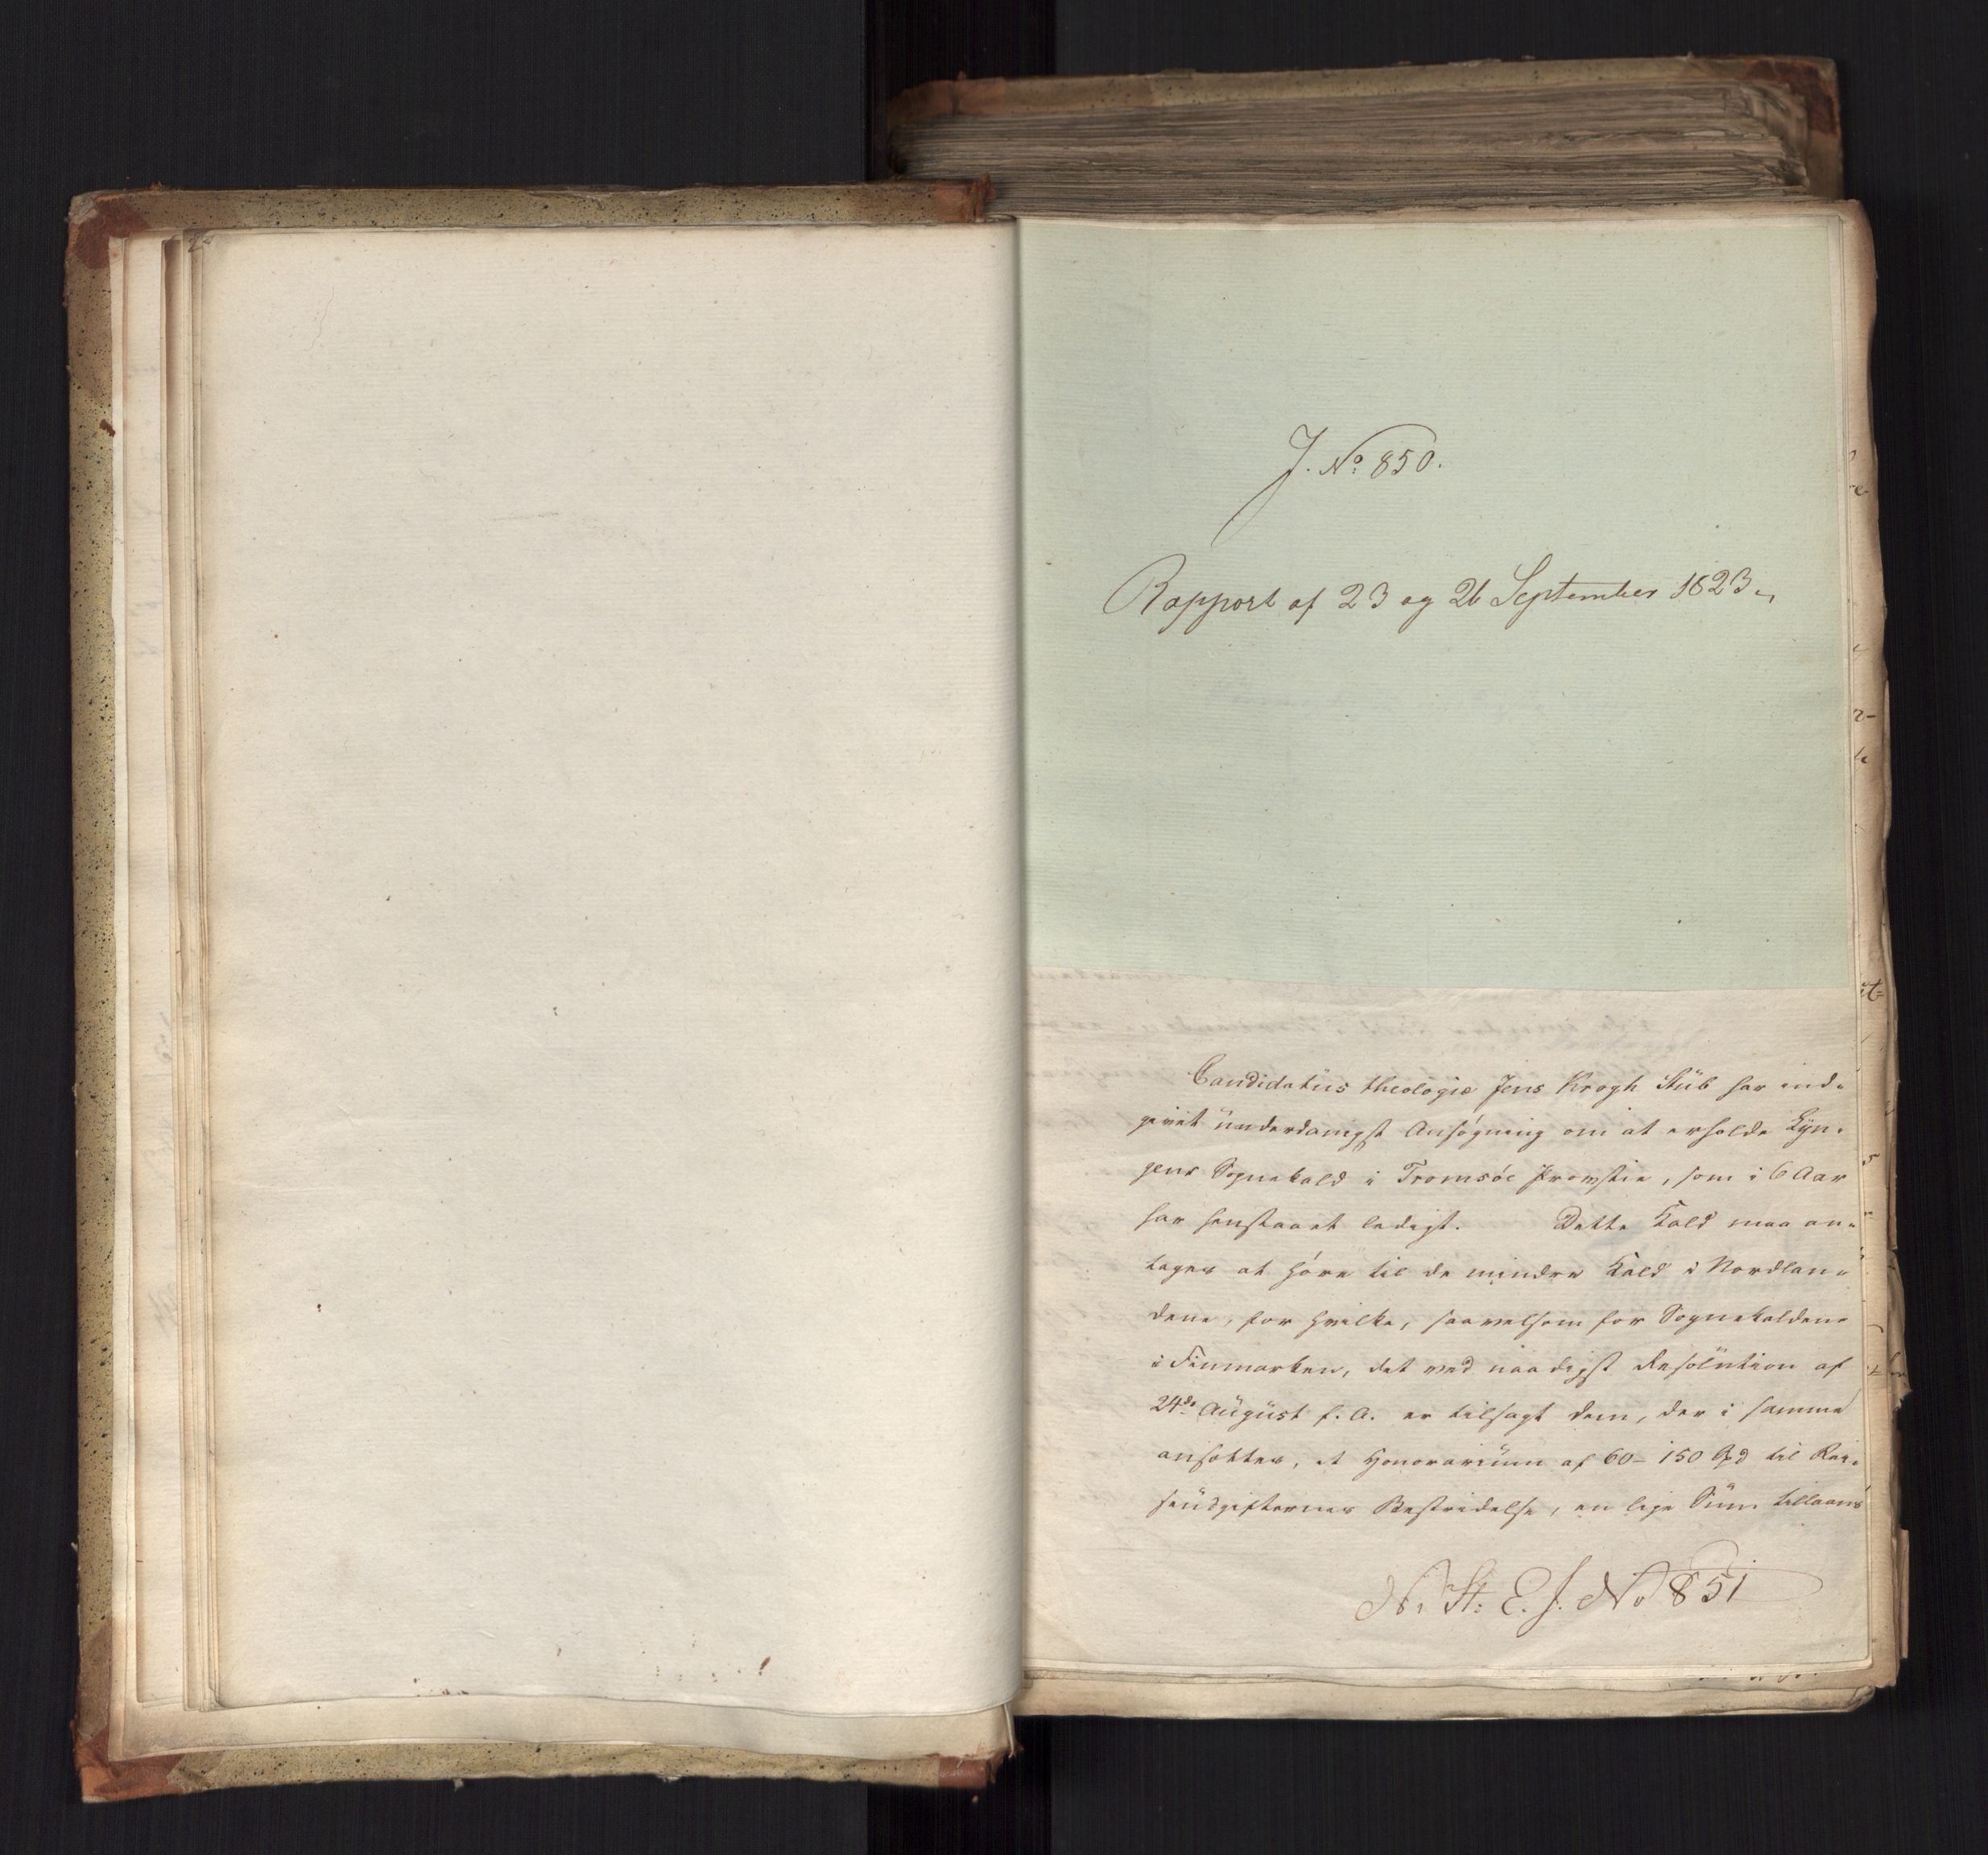 J. No 850.
Rapport af 23 og 26 September 1823
Candidatus theologiæ Jens Krogh Stüb har ind-
givet ünderdanigst Ansøgning om at erholde Lyn-
gens Sognekald i Tromsöe Provstie, som i 6 Aar
har henstaaet ledigt. Dette Kald maa an-
tages at høre til de mindre Kald i Nordlan-
dene, for hvilke, saavelsom for Sognekaldene
i Finmarken, det ved naadigst Resolütion af
24de Aügüst f. A. er tilsagt dem, der i samme
ansættes, et Honorariüm af 60 - 150 Spd til Rei-
seüdgifternes Bestridelse, en lige Süm tillaans
N. St. E. J. No 851